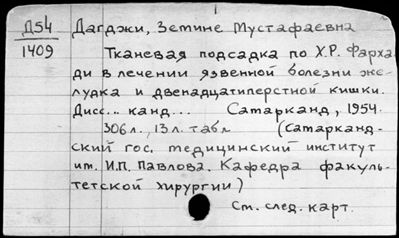 Д54
1409
Дагджи, Земине Мустафаевна
Тканевая подсадка по Х.Р. Фарха-
ди в лечении язвенной болезни же-
лудка и двенадцатиперстной кишки.
Дисс... канд... Самарканд, 1954.
306 л., 13 л. табл. (Самарканд-
ский гос. медицинский институт
им. И.П. Павлова. Кафедра факуль-
тетской хирургии)
См. след. карт.